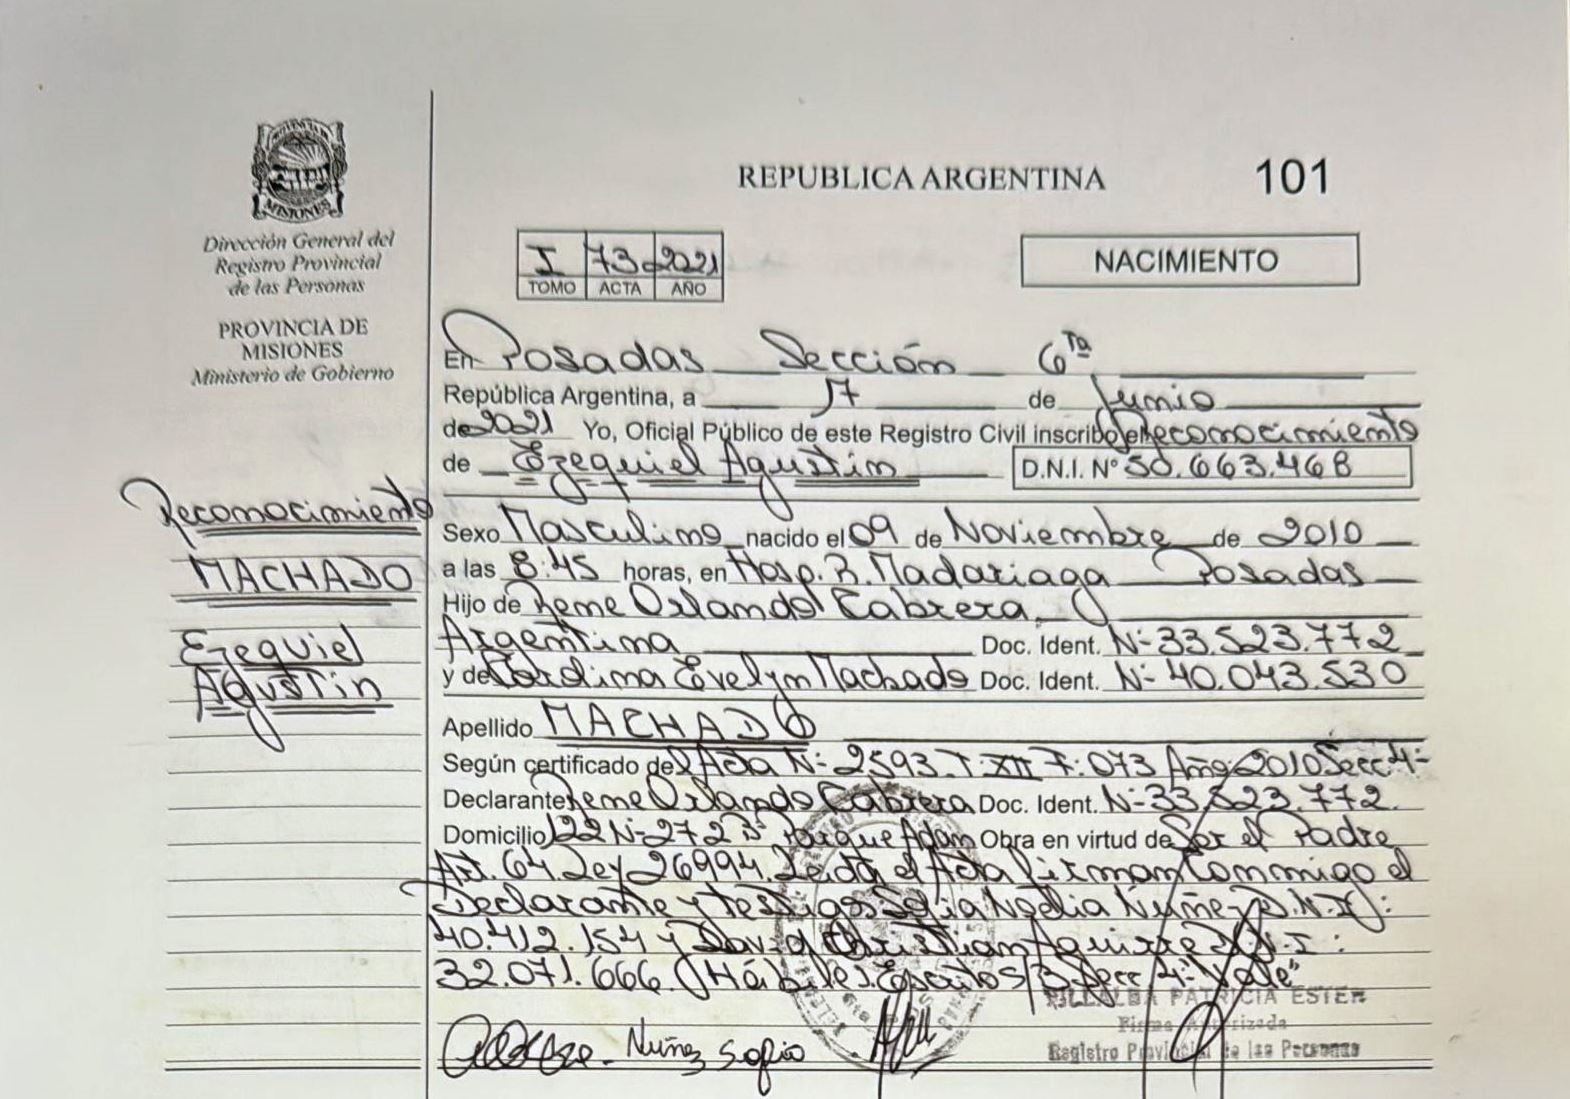 PROVINCIA DE
MISIONES
Dirección General del
Registro Provincial
de las Personas
PROVINCIA DE
MISIONES
Ministerio de Gobierno
REPUBLICA ARGENTINA
101
I 73 2021
TOMO ACTA AÑO
NACIMIENTO
En Posadas Sección 6ta
República Argentina, a 17 de Junio
de 2021 Yo, Oficial Público de este Registro Civil inscribo el Reconocimiento
de Ezequiel Agustin D.N.I. N° 50.663.468
Reconocimiento
MACHADO
Ezequiel
Agustin
Sexo Masculino nacido el 09 de Noviembre de 2010
a las 8:45 horas, en Hosp. R. Madariaga Posadas
Hijo de Rene Orlando Cabrera,
Argentina Doc. Ident. N- 33.523.772
y de Carolina Evelyn Machado Doc. Ident. N- 40.043.530
Apellido MACHADO
Según certificado del Acta N- 2593. T: XII F: 073 Año: 2010 Secc 4-
Declarante Rene Orlando Cabrera Doc. Ident. N- 33.523.772.
Domicilio 122 N- 2723 Parque Adam Obra en virtud de Ser el Padre
Art. 64 Ley 26994. Leida el Acta firman Conmigo el
Declarante y testigos Sofia Noelia Nuñez D.N.I:
40.412.154 y David Christian Aguirre D.N.I:
32.071.666. Hábiles. Escritos/3. Secc 4- "Vale"
VILLALBA PATRICIA ESTER
Firma Autorizada
Registro Provincial de las Personas
Nuñez Sofia